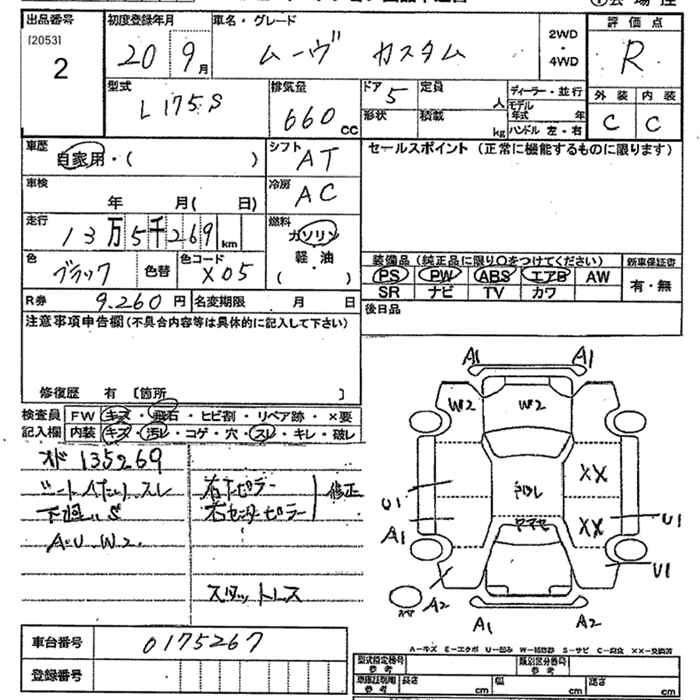 出品番号
[2053]
2
初度登録年月
20 9月
車名・グレード
ムーヴ カスタム
2WD
・
4WD
評価点
R
外装 内装
C C
型式
L175S
排気量
660cc
ドア 5
定員 人
形状
積載 kg
ディーラー・並行
モデル
年式 年
ハンドル 左・右
車歴
自家用・( )
シフト
AT
車検
年 月( 日)
冷房
AC
走行
13万5千269km
燃料
ガソリン
軽・油
( )
色
ブラック
色替
色コード
X05
R券 9.260円 名変期限 月 日
セールスポイント (正常に機能するものに限ります)
装備品(純正品に限り○をつけてください) 新車保証書
PS PW ABS エアB AW
SR ナビ TV カワ
有・無
後日品
注意事項申告欄(不具合内容等は具体的に記入して下さい)
修復歴 有 〔箇所 〕
検査員 FW キズ・飛石・ヒビ割・リペア跡・×要
記入欄 内装 キズ・汚レ・コゲ・穴・スレ・キレ・破レ
135269
スレ
S
A・U W2.
右センターピラー
修正
スタットレス
A1 A1
W2 W2
XX
XX
U1 U1
A1 U1
A2
A1 A2
スペア
車台番号 0175267
登録番号
A-キズ E-エクボ U-凹み W-補修跡 S-サビ C-腐食 XX-交換済
型式指定番号
参考
類別区分番号
参考
長さ cm
幅 cm
高さ cm